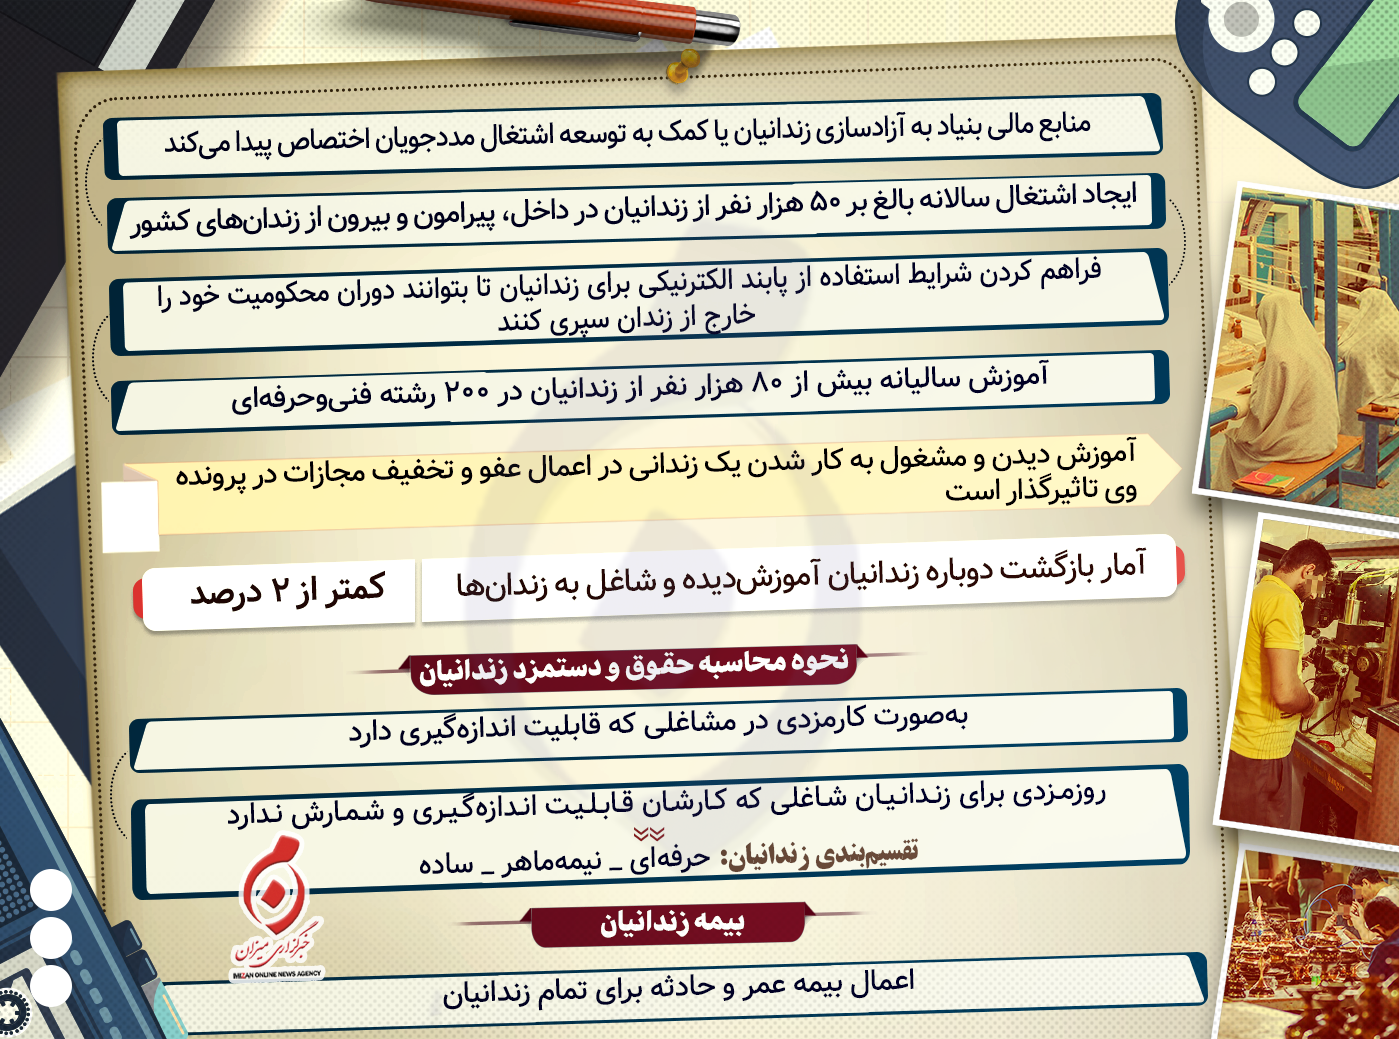 منابع مالی بنیاد به آزادسازی زندانیان یا کمک به توسعه اشتغال مددجویان اختصاص پیدا می‌کند
ایجاد اشتغال سالانه بالغ بر ۵۰ هزار نفر از زندانیان در داخل، پیرامون و بیرون از زندان‌های کشور
فراهم کردن شرایط استفاده از پابند الکترنیکی برای زندانیان تا بتوانند دوران محکومیت خود را
خارج از زندان سپری کنند
آموزش سالیانه بیش از ۸۰ هزار نفر از زندانیان در ۲۰۰ رشته فنی‌وحرفه‌ای
آموزش دیدن و مشغول به کار شدن یک زندانی در اعمال عفو و تخفیف مجازات در پرونده
وی تاثیرگذار است
آمار بازگشت دوباره زندانیان آموزش‌دیده و شاغل به زندان‌ها
کمتر از ۲ درصد
نحوه محاسبه حقوق و دستمزد زندانیان
به‌صورت کارمزدی در مشاغلی که قابلیت اندازه‌گیری دارد
روزمزدی برای زندانیان شاغلی که کارشان قابلیت اندازه‌گیری و شمارش ندارد
تقسیم‌بندی زندانیان: حرفه‌ای _ نیمه‌ماهر _ ساده
بیمه زندانیان
خبرگزاری میزان
MIZAN ONLINE NEWS AGENCY
اعمال بیمه عمر و حادثه برای تمام زندانیان